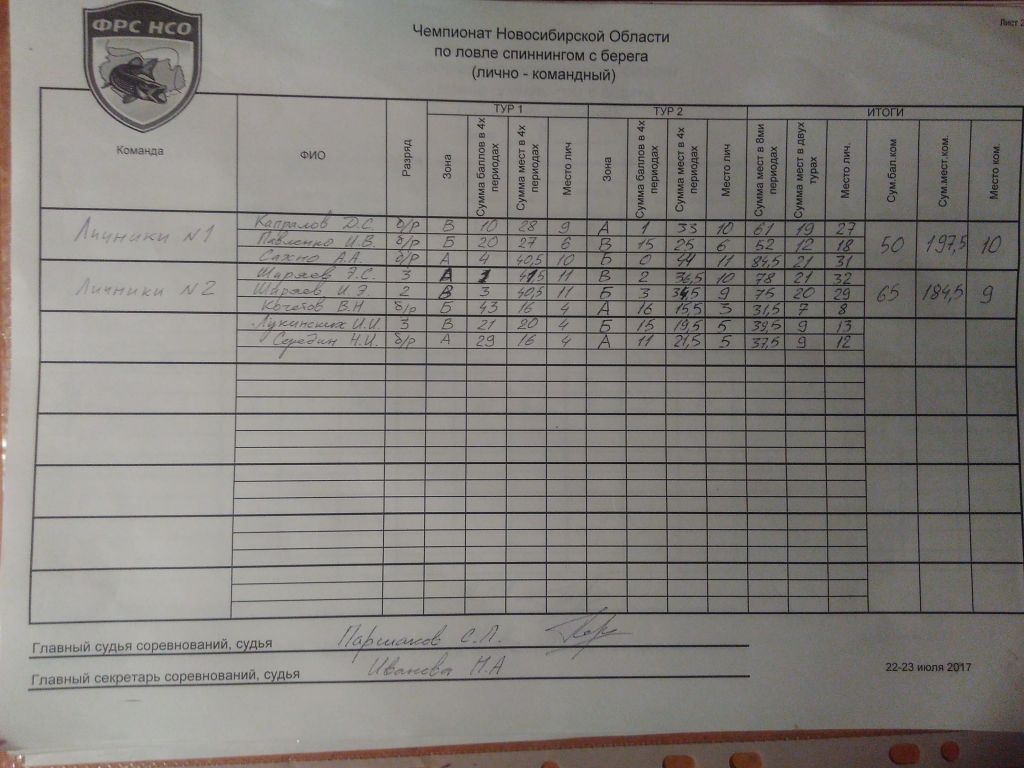 ФРС НСО
Чемпионат Новосибирской Области
по ловле спиннингом с берега
(лично - командный)
Лист 2
Команда ФИО Разряд ТУР 1 ТУР 2 ИТОГИ
Зона Сумма баллов в 4х периодах Сумма мест в 4х периодах Место лич Зона Сумма баллов в 4х периодах Сумма мест в 4х периодах Место лич Сумма мест в 8ми периодах Сумма мест в двух турах Место лич. Сум.бал.ком Сум.мест.ком. Место ком.
Личники №1 Капралов Д.С. б/р В 10 28 9 А 1 33 10 61 19 27 50 197,5 10
Павленко И.В. б/р Б 20 27 6 В 15 25 6 52 12 18
Сахно А.А. б/р А 4 40,5 10 Б 0 44 11 84,5 21 31
Личники №2 Шаряев Э.С. 3 А 1 41,5 11 В 2 36,5 10 78 21 32 65 184,5 9
Шаряев И.Э. 2 В 3 40,5 11 Б 3 34,5 9 75 20 29
Кочетов В.Н б/р Б 43 16 4 А 16 15,5 3 31,5 7 8
Лукинских И.И 3 В 21 20 4 Б 15 19,5 5 39,5 9 13
Середин Н.И. б/р А 29 16 4 А 11 21,5 5 37,5 9 12
Главный судья соревнований, судья Паршаков С.П.
Главный секретарь соревнований, судья Иванова Н.А
22-23 июля 2017